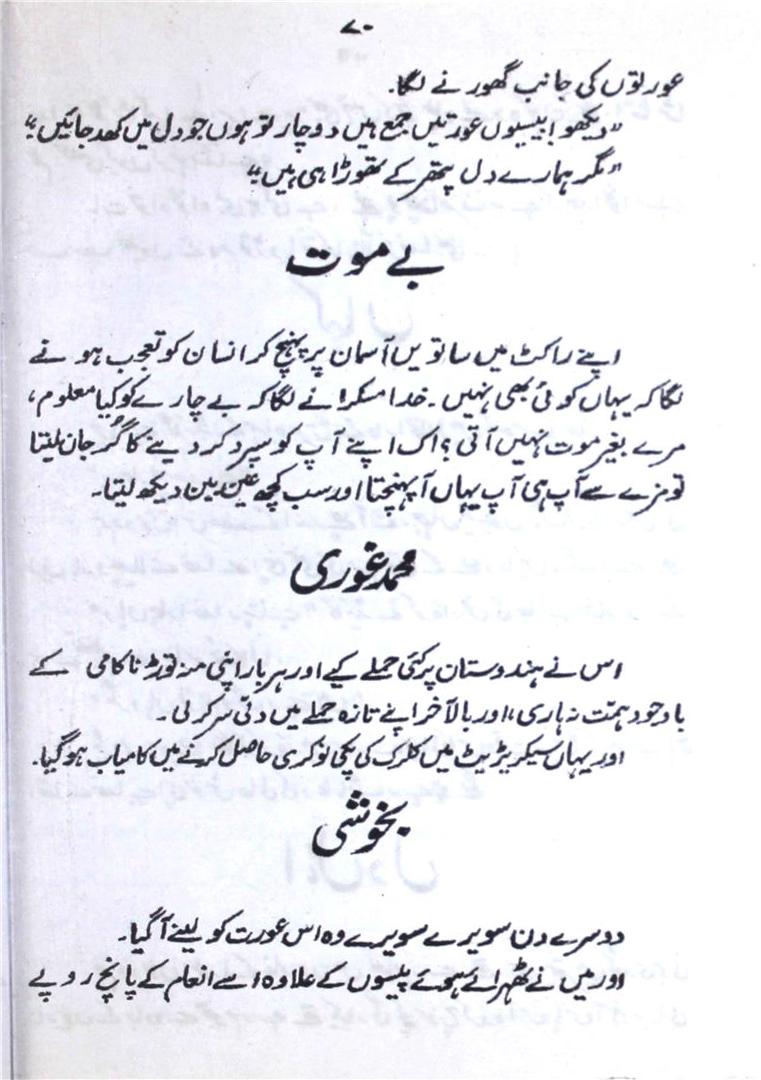 ۷۰
عورتوں کی جانب گھورنے لگا۔
"دیکھو! بیسیوں عورتیں جمع ہیں دو چار تو ہوں جو دل میں کھد جائیں"
"مگر ہمارے دل پتھر کے تھوڑا ہی ہیں"
بے موت
اپنے راکٹ میں ساتویں آسمان پر پہنچ کر انسان کو تعجب ہونے
لگا کہ یہاں کوئی بھی نہیں۔ خدا مسکرانے لگا کہ بے چارے کو کیا معلوم،
مرے بغیر موت نہیں آتی؟ اک اپنے آپ کو سپرد کر دینے کا گُر جان لیتا
تو مزے سے آپ ہی آپ یہاں آ پہنچتا اور سب کچھ عین مین دیکھ لیتا۔
محمد غوری
اس نے ہندوستان پر کئی حملے کیے اور ہر بار اپنی منہ توڑ ناکامی کے
باوجود ہمت نہ ہاری، اور بالآخر اپنے تازہ حملے میں دلّی سر کر لی۔
اور یہاں سیکریٹریٹ میں کلرک کی پکی نوکری حاصل کرنے میں کامیاب ہو گیا۔
بخوشی
دوسرے دن سویرے سویرے وہ اس عورت کو لینے آ گیا۔
اور میں نے ٹھہرائے ہوئے پیسوں کے علاوہ اسے انعام کے پانچ روپے